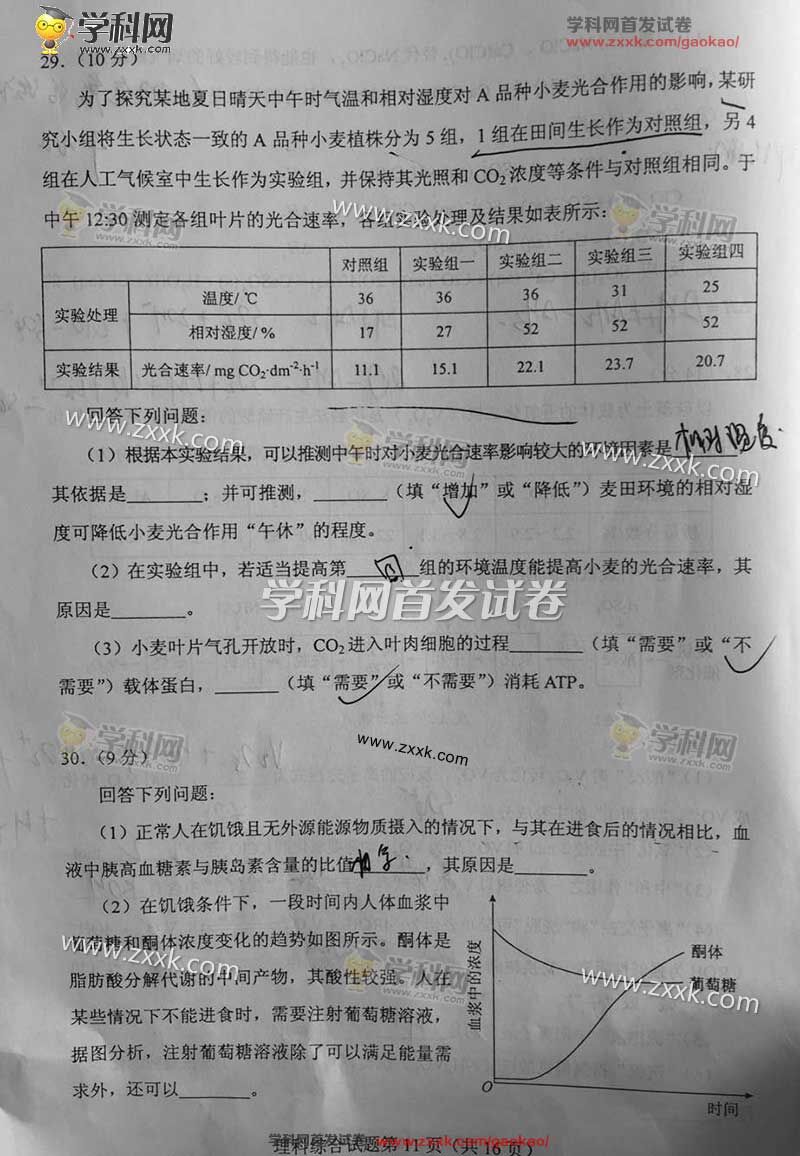 学科网 zxxk.com
学科网首发试卷
www.zxxk.com/gaokao/
29.（10 分）
为了探究某地夏日晴天中午时气温和相对湿度对 A 品种小麦光合作用的影响，某研
究小组将生长状态一致的 A 品种小麦植株分为 5 组，1 组在田间生长作为对照组，另 4
组在人工气候室中生长作为实验组，并保持其光照和 CO₂ 浓度等条件与对照组相同。于
中午 12:30 测定各组叶片的光合速率，各组实验处理及结果如表所示：
对照组 实验组一 实验组二 实验组三 实验组四
实验处理 温度/ ℃ 36 36 36 31 25
相对湿度/ % 17 27 52 52 52
实验结果 光合速率/ mg CO₂·dm⁻²·h⁻¹ 11.1 15.1 22.1 23.7 20.7
回答下列问题：
（1）根据本实验结果，可以推测中午时对小麦光合速率影响较大的环境因素是 相对湿度
其依据是________；并可推测，________（填“增加”或“降低”）麦田环境的相对湿
度可降低小麦光合作用“午休”的程度。
（2）在实验组中，若适当提高第________组的环境温度能提高小麦的光合速率，其
原因是________。
学科网首发试卷
（3）小麦叶片气孔开放时，CO₂ 进入叶肉细胞的过程________（填“需要”或“不
需要”）载体蛋白，________（填“需要”或“不需要”）消耗 ATP。
www.zxxk.com
30.（9 分）
回答下列问题：
（1）正常人在饥饿且无外源能源物质摄入的情况下，与其在进食后的情况相比，血
液中胰高血糖素与胰岛素含量的比值________，其原因是________。
（2）在饥饿条件下，一段时间内人体血浆中
葡萄糖和酮体浓度变化的趋势如图所示。酮体是
脂肪酸分解代谢的中间产物，其酸性较强。人在
某些情况下不能进食时，需要注射葡萄糖溶液，
据图分析，注射葡萄糖溶液除了可以满足能量需
求外，还可以________。
血浆中的浓度
酮体
葡萄糖
O
时间
学科网首发试卷 www.zxxk.com/gaokao/
理科综合试题第 11 页（共 16 页）